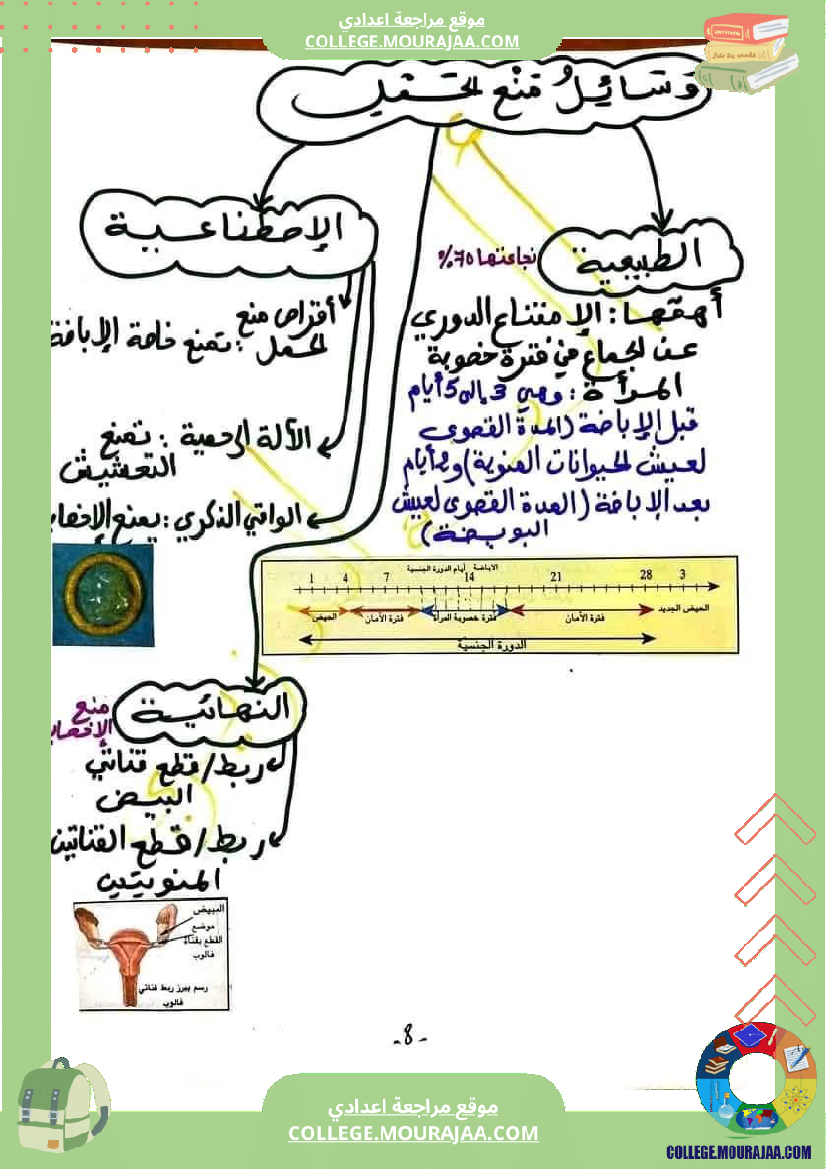 موقع مراجعة اعدادي
COLLEGE.MOURAJAA.COM
وَسَائِلُ مَنْع الحَمْل
الطبيعية
نجاعتها 70%
أهمّها: الإمتناع الدوري
عن الجماع في فترة خصوبة
المرأة: وهي 3 إلى 5 أيام
قبل الإباضة (المدة القصوى
لعيش الحيوانات المنوية) و2 أيام
بعد الإباضة (المدة القصوى لعيش
البويضة)
الاباضة أيام الدورة الجنسية
1 4 7 14 21 28 3
الحيض فترة الأمان فترة خصوبة المرأة فترة الأمان الحيض الجديد
الدورة الجنسية
الإصطناعية
أقراص منع
الحمل: تمنع خاصة الإباضة
الألة الرحمية: تمنع
التعشيش
الواقي الذكري: يمنع الإخصا
النهائية
منع
الإخصا
ربط/قطع قناتي
البيض
ربط/قطع القناتين
المنويتين
المبيض
موضع
القطع بقناة
فالوب
رسم يبرز ربط قناتي
فالوب
-8-
موقع مراجعة اعدادي
COLLEGE.MOURAJAA.COM
COLLEGE.MOURAJAA.COM